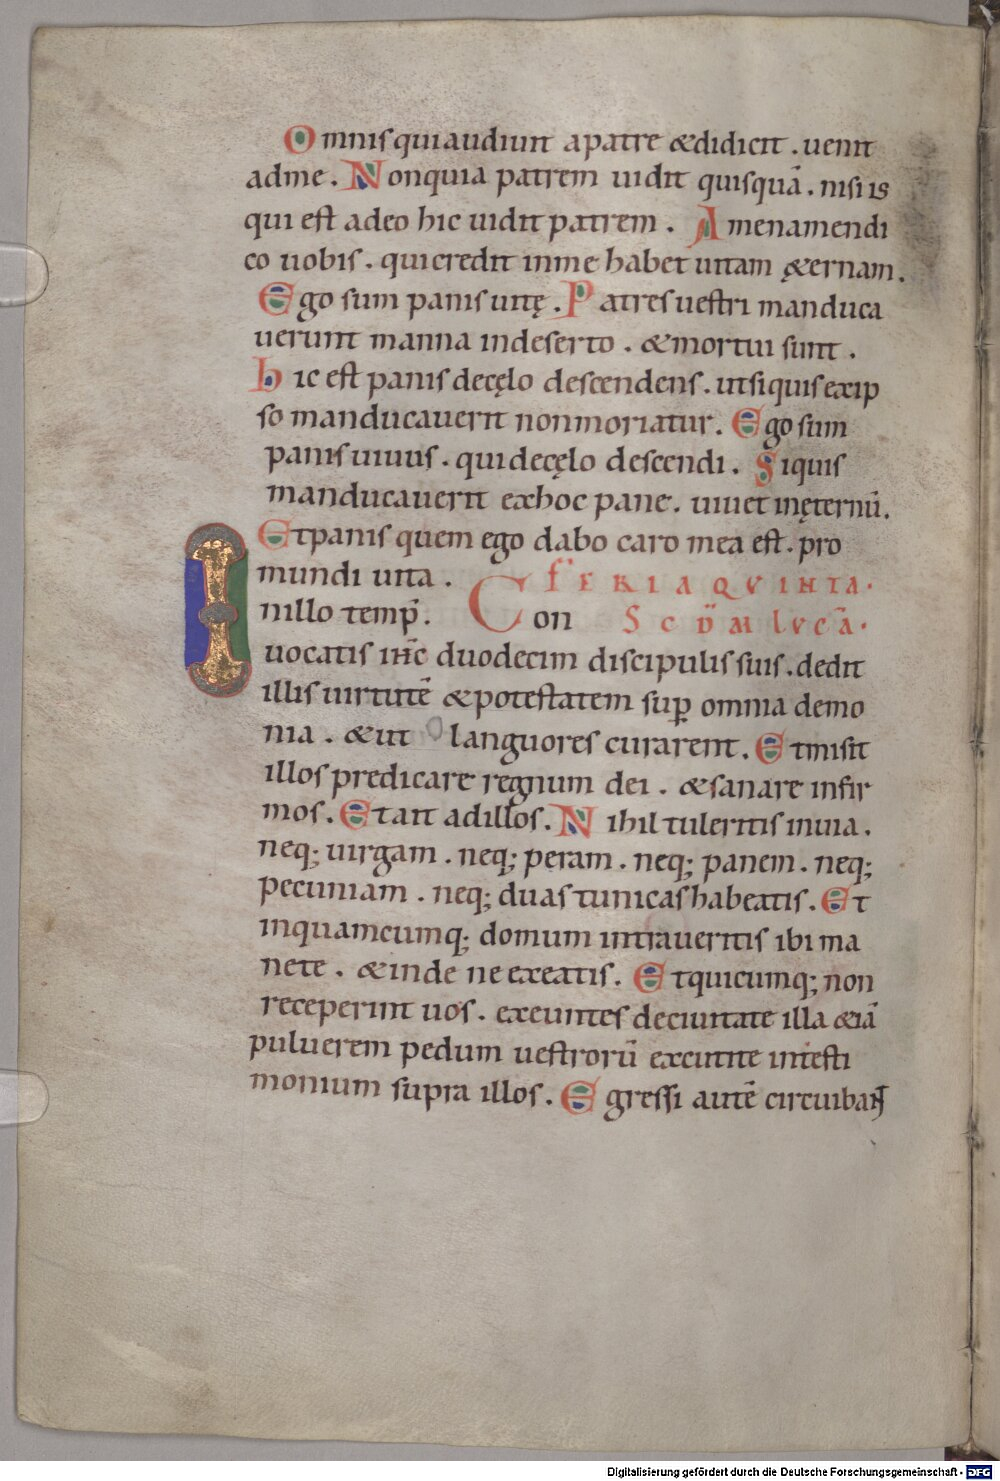 Omnis qui audiunt a patre & didicit . uenit
ad me . Non quia patrem uidit quisquā . nisi is
qui est a deo hic uidit patrem . Amen amen di
co uobis . qui credit in me habet uitam &̨ernam .
Ego sum panis uitę . Patres uestri manduca
uerunt manna in deserto . & mortui sunt .
hic est panis de cęlo descendens . ut si quis ex ip
so manducauerit non moriatur . Ego sum
panis uiuus . qui de cęlo descendi . Si quis
manducauerit ex hoc pane . uiuet in ęternū .
Et panis quem ego dabo caro mea est . pro
mundi uita . FERIA QVINTA .
In illo temp̄ . Con SCDM LVCĀ .
uocatis ihc̄ duodecim discipulis suis . dedit
illis uirtutē & potestatem sup̄ omnia demo
nia . & ut languores curarent . Et misit
illos predicare regnum dei . & sanare infir
mos . Et ait ad illos . Nihil tuleritis in uia .
neq; uirgam . neq; peram . neq; panem . neq;
pecuniam . neq; duas tunicas habeatis . Et
in quamcumq; domum intraueritis ibi ma
nete . & inde ne exeatis . Et quicumq; non
receperint uos . exeuntes de ciuitate illa & iā
puluerem pedum uestrorū excutite in testi
monium supra illos . Egressi autē circuibant
Digitalisierung gefördert durch die Deutsche Forschungsgemeinschaft - DFG